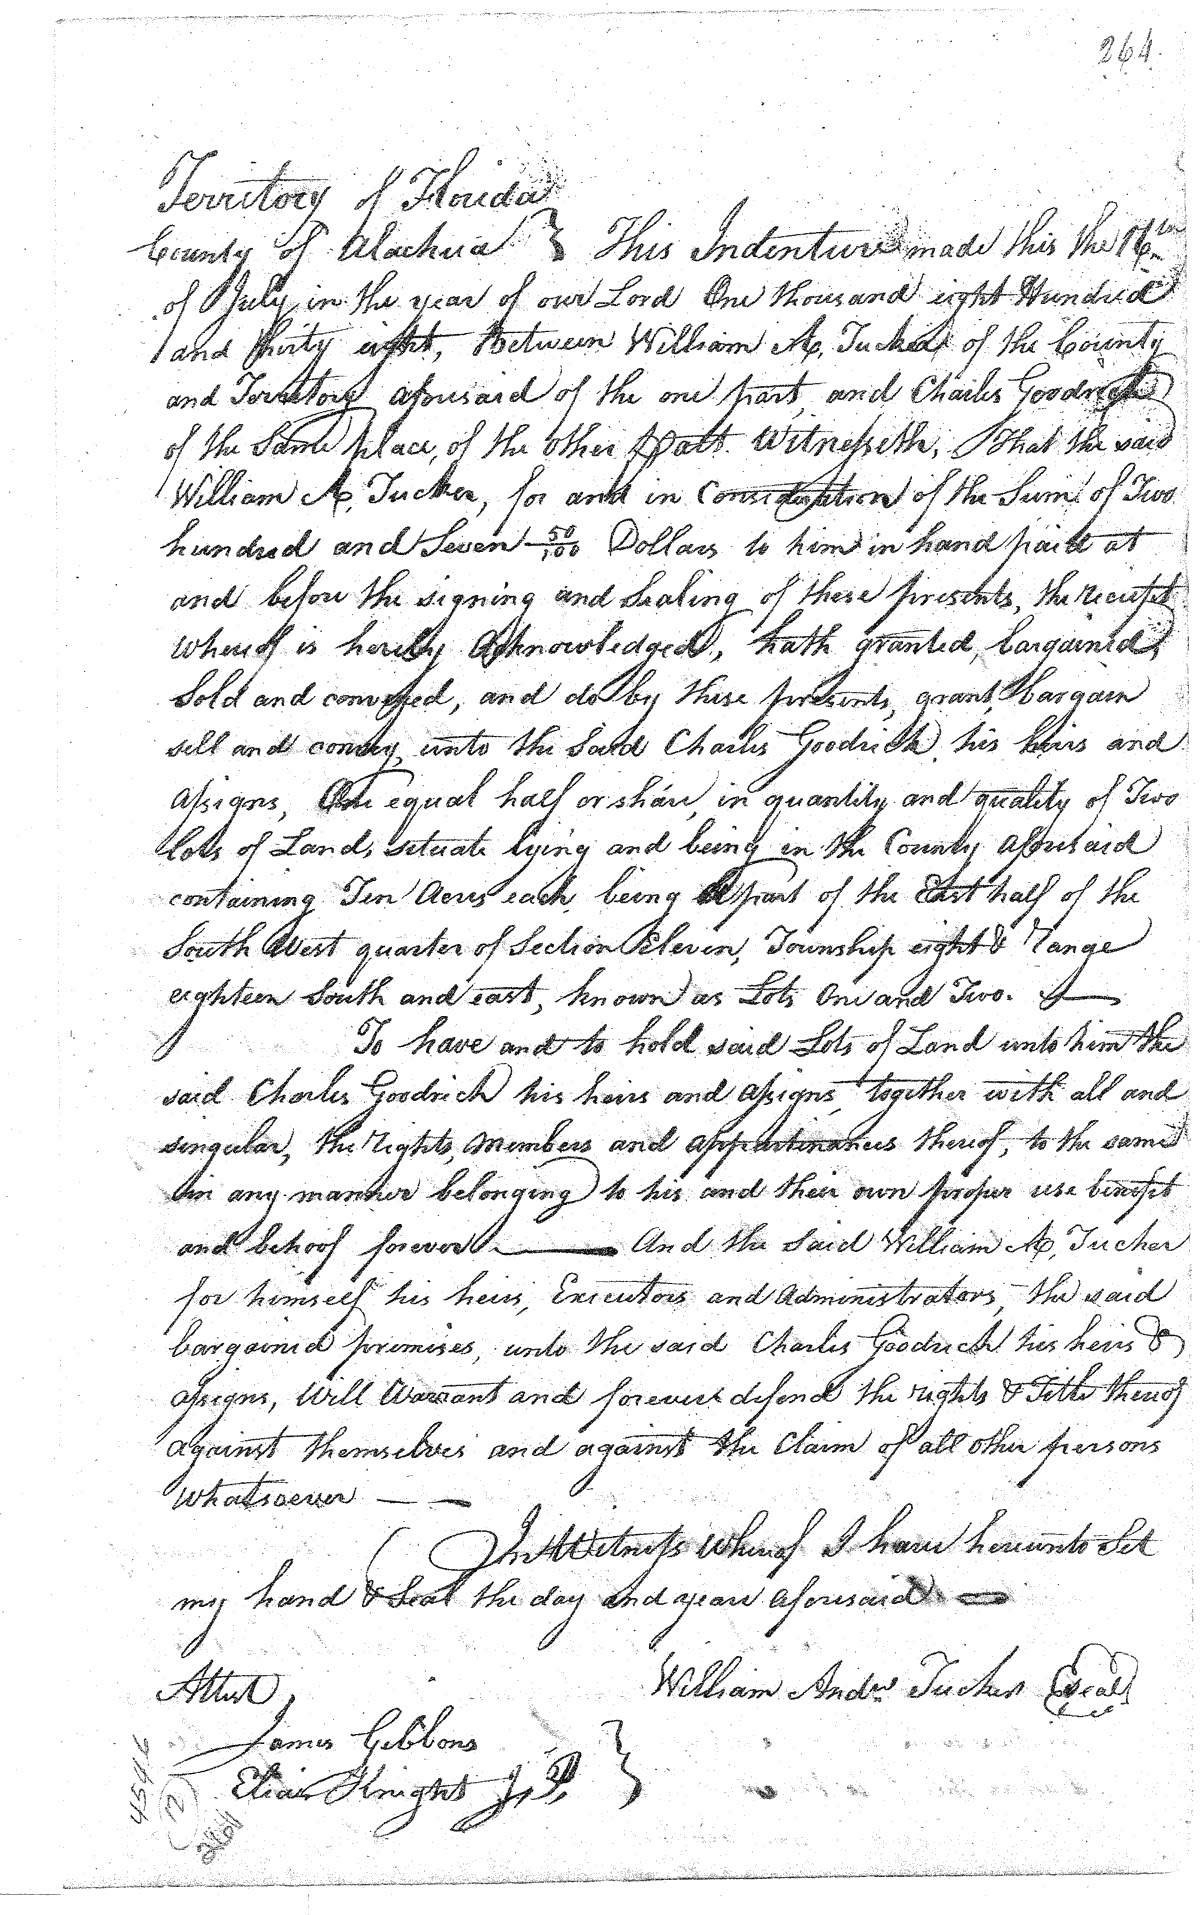 264.
Territory of Florida
County of Alachua } This Indenture made this the 16th
of July in the year of our Lord One thousand eight Hundred
and thirty eight, Between William A, Tucker of the County
and Territory aforesaid of the one part, and Charles Goodrich
of the Same place, of the other Part. Witnesseth, That the said
William A, Tucker, for and in Consideration of the Sum of Two
hundred and Seven 50/100 Dollars to him in hand paid at
and before the signing and Sealing of these presents, the receipt
whereof is hereby Acknowledged, hath granted, bargained,
Sold and conveyed, and do by these presents, grant bargain
sell and convey, unto the Said Charles Goodrich, his heirs and
Assigns, One equal half or share, in quantity and quality of Two
lots of Land, situate lying and being in the County aforesaid
containing Ten Acres each, being a part of the East half of the
South West quarter of Section Eleven, Township eight & range
eighteen South and east, known as Lots One and Two.
To have and to hold said Lots of Land unto him the
said Charles Goodrich his heirs and assigns, together with all and
singular, the rights, Members and appartinances thereof, to the same
in any manner belonging to his and their own proper use benefit
and behoof forever. And the Said William A, Tucker
for himself his heirs, Executors and Administrators, the said
bargained premises, unto the said Charles Goodrich his heirs &
assigns, Will Warrant and forever defend the rights & Title thereof
against themselves and against the Claim of all other persons
whatsoever — —
In Witness Whereof I have hereunto Set
my hand & Seal the day and year aforesaid —
Attest William Andw Tucker (Seal)
James Gibbons
Elias Knight J, P, }
4546
(12)
264